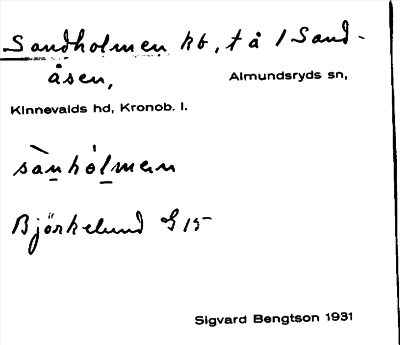 Sandholmen kt, t å 1 Sand-
åsen,
Almundsryds sn,
Kinnevalds hd, Kronob. l.
sànhólmen
Björkelund G 15
Sigvard Bengtson 1931